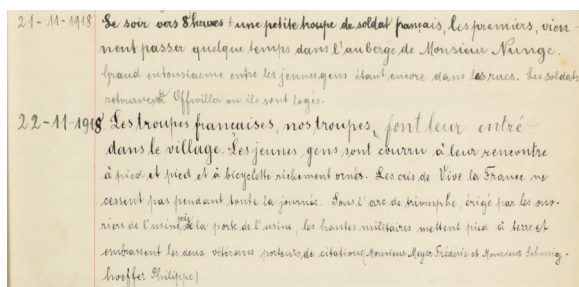 21-11-1918 Le soir vers 8 heures + une petite troupe de soldat français, les premiers, vien-
nent passer quelque temps dans l'auberge de Monsieur Nunge.
Grand entousiasme entre les jeunes gens étant encore dans les rues. Les soldats
retournent à Offwiller ou ils sont logés.
22-11-1918 Les troupes françaises, nos troupes, font leur entré
dans le village. Les jeunes gens sont courru à leur rencontre
à pied et pied et à bicyclette richement ornés. Les cris de Vive la France ne
cessent pas pendant toute la journée. Sous l'arc de triomphe, érigé par les ouv-
riers de l'usine, de la porte de l'usine, les hautes militaires mettent pied à terre et
embrassent les deux vétérans porteurs de citations (Monsieur Meyer Fréderic et Monsieur Schweig-
hoeffer Philippe)